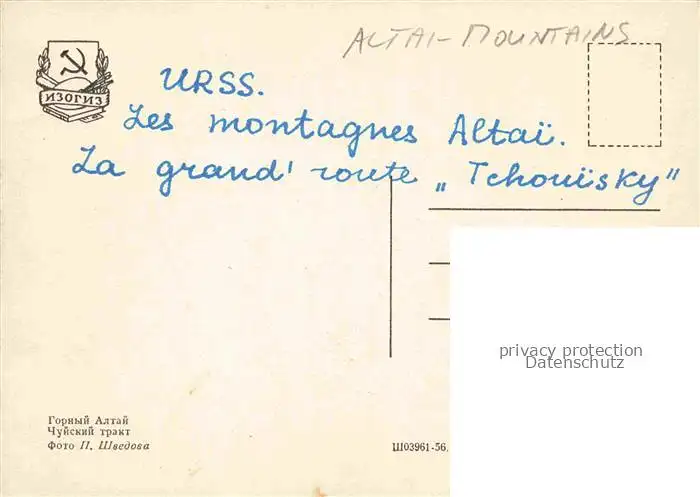 ALTAI-MOUNTAINS
ИЗОГИЗ
URSS.
Les montagnes Altaï.
La grand' route „Tchouïsky"
privacy protection
Datenschutz
Горный Алтай
Чуйский тракт
Фото П. Шведова
Ш03961-56.